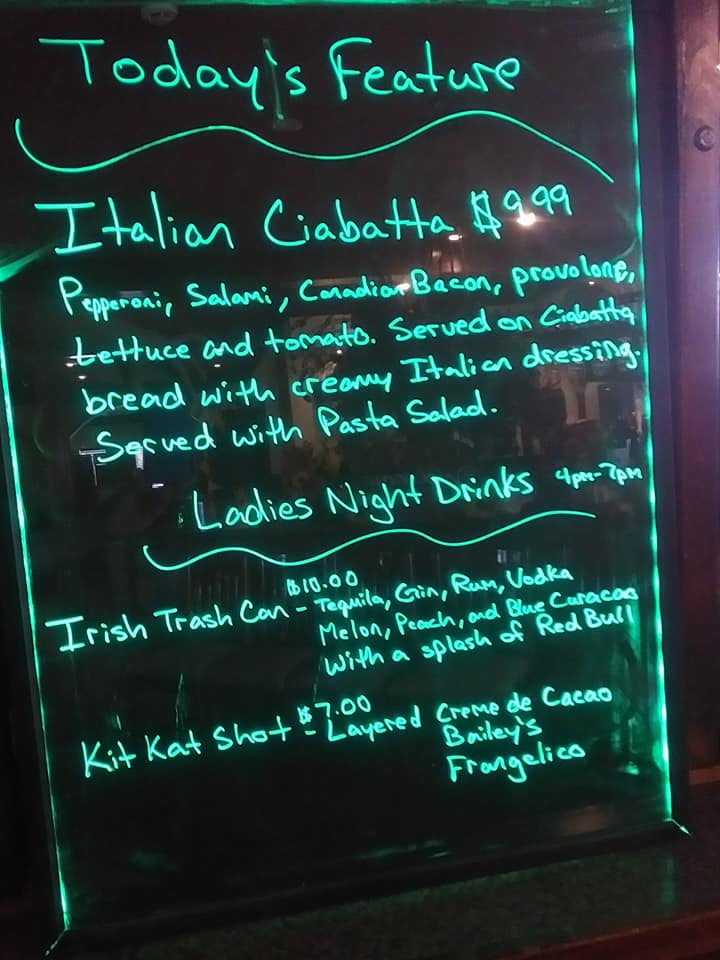 Today's Feature
Italian Ciabatta $9.99
Pepperoni, Salami, Canadian Bacon, provolone,
Lettuce and tomato. Served on Ciabatta
bread with creamy Italian dressing.
Served with Pasta Salad.
Ladies Night Drinks 4pm-7pm
$10.00
Irish Trash Can - Tequila, Gin, Rum, Vodka
Melon, Peach, and Blue Curacao
with a splash of Red Bull
$7.00
Kit Kat Shot - Layered Creme de Cacao
Bailey's
Frangelico